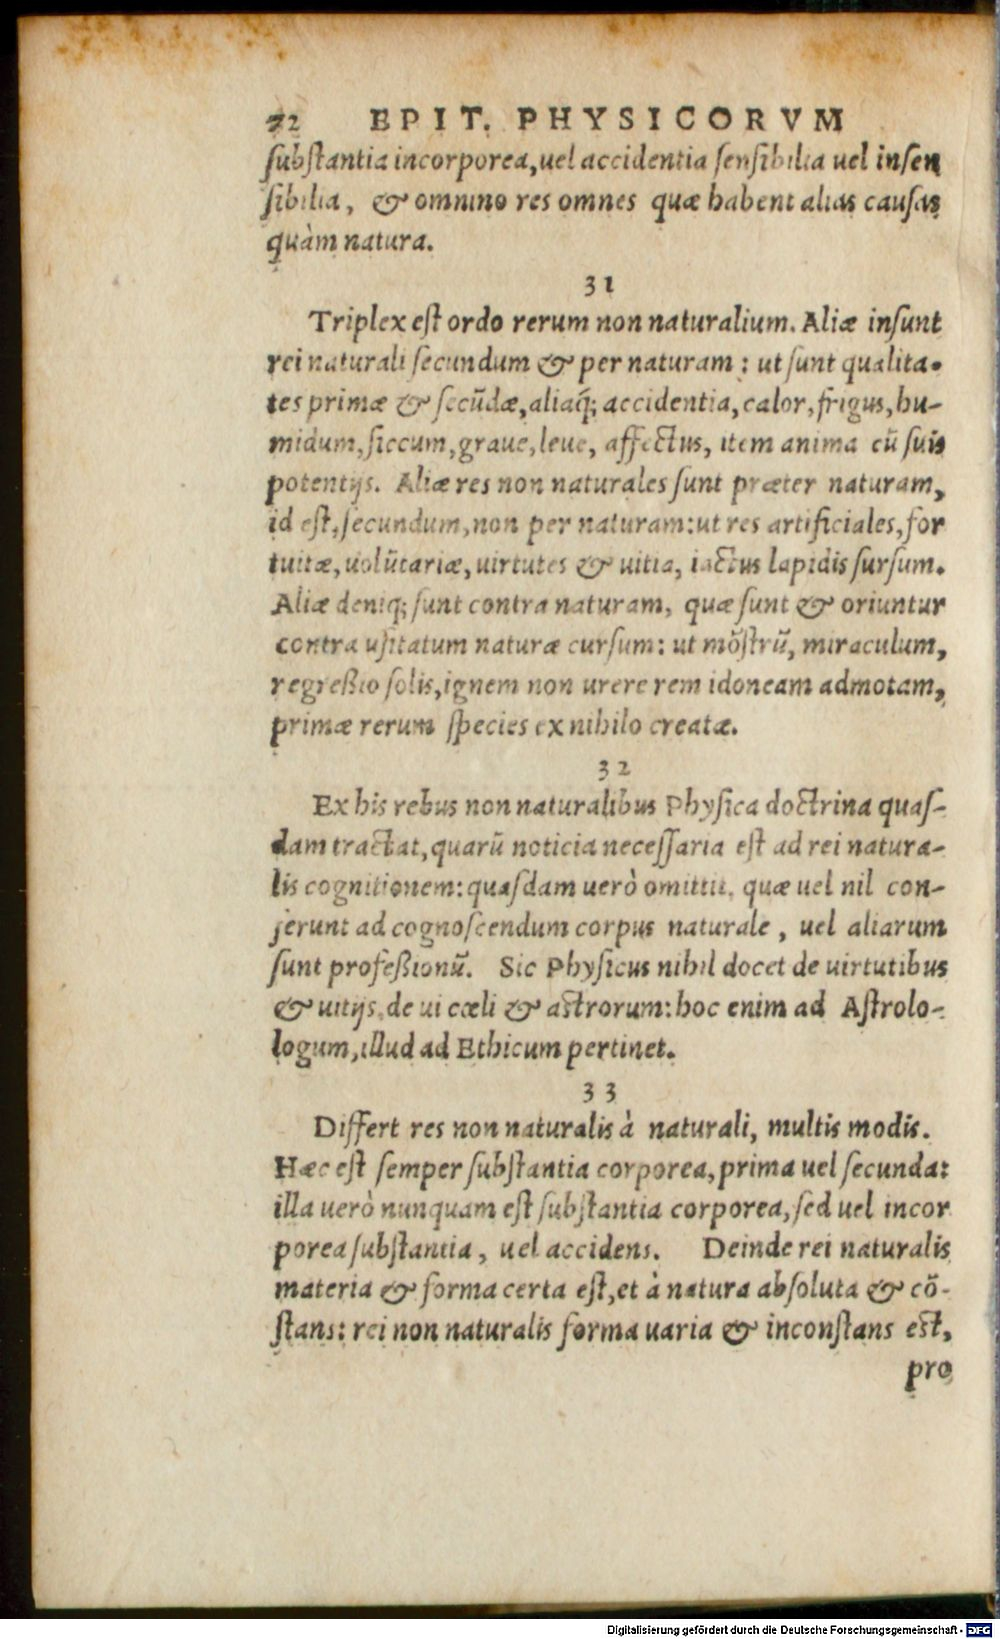 72 EPIT. PHYSICORVM
ſubſtantia incorporea, uel accidentia ſenſibilia uel inſen
ſibilia, & omnino res omnes quæ habent alias cauſas
quàm natura.
31
Triplex eſt ordo rerum non naturalium. Aliæ inſunt
rei naturali ſecundum & per naturam: ut ſunt qualita-
tes primæ & ſecūdæ, aliaq́; accidentia, calor, frigus, hu-
midum, ſiccum, graue, leue, affectus, item anima cū ſuis
potentijs. Aliæ res non naturales ſunt præter naturam,
id eſt, ſecundum, non per naturam: ut res artificiales, for
tuitæ, uolūtariæ, uirtutes & uitia, iactus lapidis ſurſum.
Aliæ deniq; ſunt contra naturam, quæ ſunt & oriuntur
contra uſitatum naturæ curſum: ut mōſtrū, miraculum,
regreßio ſolis, ignem non urere rem idoneam admotam,
primæ rerum ſpecies ex nihilo creatæ.
32
Ex his rebus non naturalibus Phyſica doctrina quaſ-
dam tractat, quarū noticia neceſſaria eſt ad rei natura-
lis cognitionem: quaſdam uerò omittit, quæ uel nil con-
ferunt ad cognoſcendum corpus naturale, uel aliarum
ſunt profeßionū. Sic Phyſicus nihil docet de uirtutibus
& uitijs, de ui cœli & aſtrorum: hoc enim ad Aſtrolo-
logum, illud ad Ethicum pertinet.
33
Differt res non naturalis à naturali, multis modis.
Hæc eſt ſemper ſubſtantia corporea, prima uel ſecunda:
illa uerò nunquam eſt ſubſtantia corporea, ſed uel incor
porea ſubſtantia, uel accidens. Deinde rei naturalis
materia & forma certa eſt, et à natura abſoluta & cō-
ſtans: rei non naturalis forma uaria & inconſtans eſt,
pro
Digitalisierung gefördert durch die Deutsche Forschungsgemeinschaft - DFG